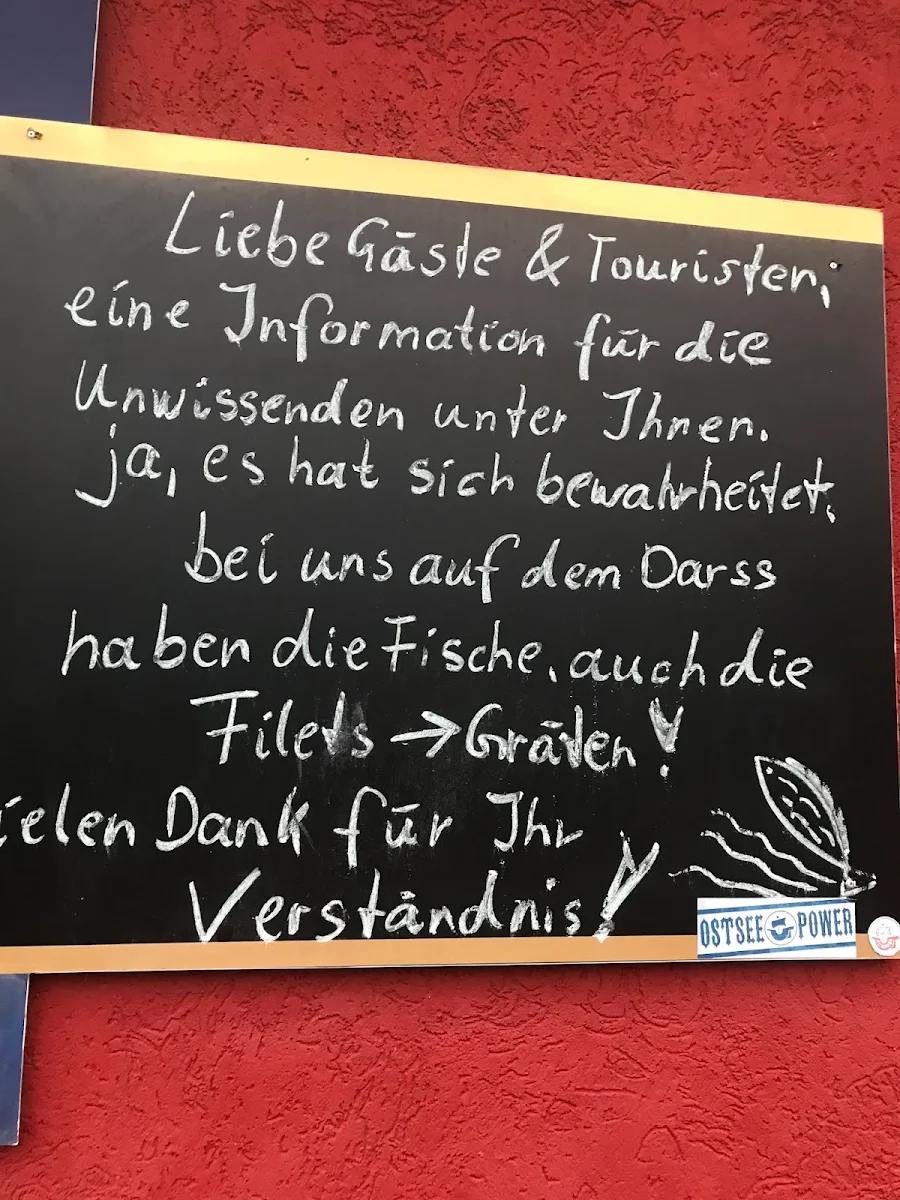 Liebe Gäste & Touristen,
eine Information für die
Unwissenden unter Ihnen.
ja, es hat sich bewahrheitet,
bei uns auf dem Darss
haben die Fische, auch die
Filets → Gräten!
ielen Dank für Ihr
Verständnis!
OSTSEE POWER